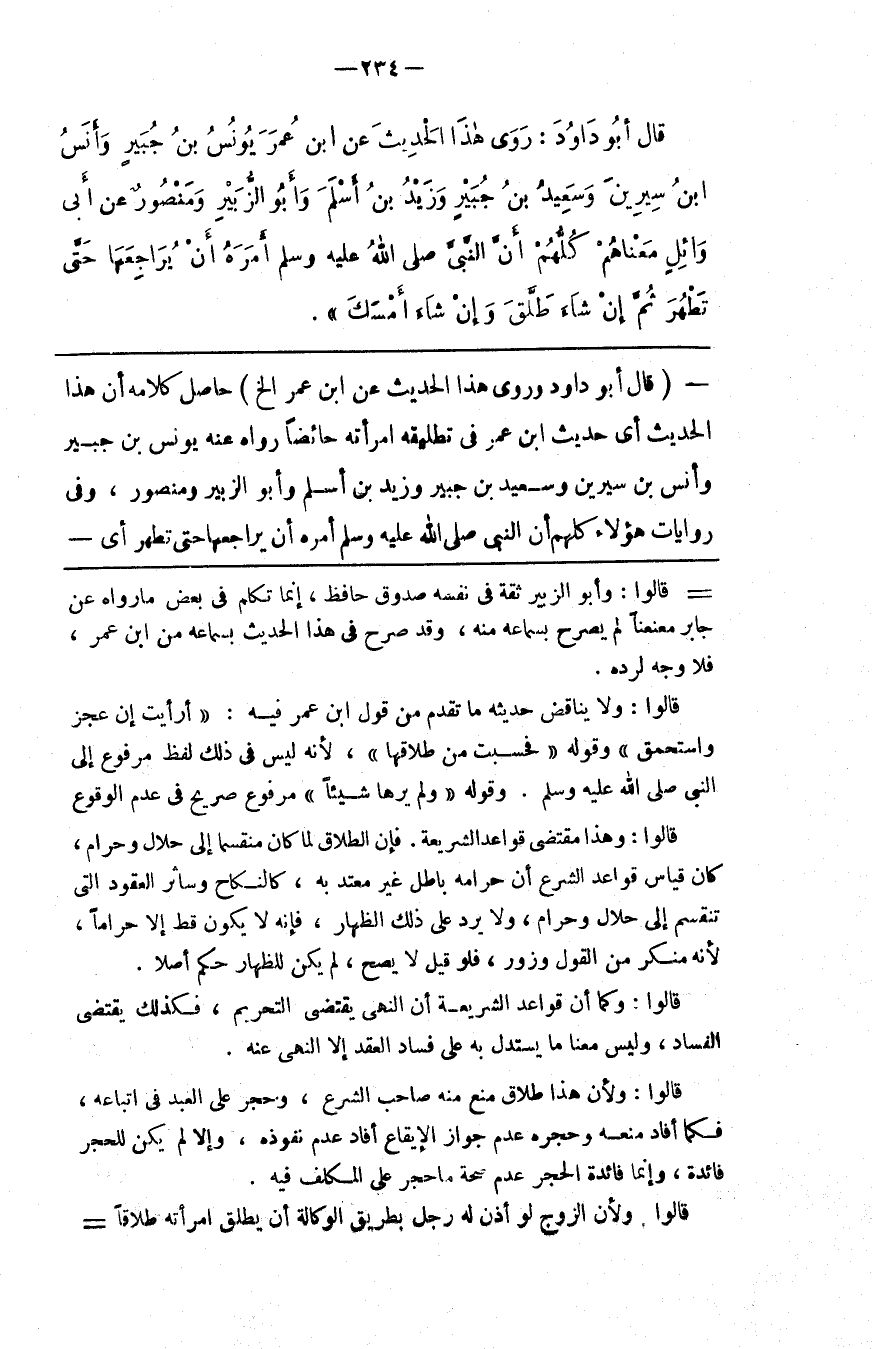 —٢٣٤—
قال أبُو دَاوُدَ : رَوَى هٰذَا الْحَدِيثَ عَن ابن عُمَرَ يُونُسُ بنُ جُبَيرٍ وَأَنَسُ
ابنُ سِيرِينَ وَسَعِيدُ بنُ جُبَيْرٍ وَزَيْدُ بنُ أَسْلَمَ وَأَبُو الزُّبَيْرِ وَمَنْصُورٌ عن أبى
وَائِلٍ مَعْنَاهُمْ كُلُّهُمْ أَنَّ النَّبِىَّ صلى اللهُ عليه وسلم أَمَرَهُ أَنْ يُرَاجِعَهَا حَتَّى
تَطْهُرَ ثُمَّ إِنْ شَاءَ طَلَّقَ وَإِنْ شَاءَ أَمْسَكَ » .
— ( قال أبو داود وروى هذا الحديث عن ابن عمر الخ ) حاصل كلامه أن هذا
الحديث أى حديث ابن عمر فى تطليقه امرأته حائضاً رواه عنه يونس بن جبير
وأنس بن سيرين وسعيد بن جبير وزيد بن أسلم وأبو الزبير ومنصور ، وفى
روايات هؤلاء كلهم أن النبى صلى الله عليه وسلم أمره أن يراجعها حتى تطهر أى —
= قالوا : وأبو الزبير ثقة فى نفسه صدوق حافظ ، إنما تكلم فى بعض مارواه عن
جابر معنعناً لم يصرح بسماعه منه ، وقد صرح فى هذا الحديث بسماعه من ابن عمر ،
فلا وجه لرده .
قالوا : ولا يناقض حديثه ما تقدم من قول ابن عمر فيه : « أرأيت إن عجز
واستحمق » وقوله « فحسبت من طلاقها » ، لأنه ليس فى ذلك لفظ مرفوع إلى
النبى صلى الله عليه وسلم . وقوله « ولم يرها شيئاً » مرفوع صريح فى عدم الوقوع
قالوا : وهذا مقتضى قواعد الشريعة . فإن الطلاق لما كان منقسما إلى حلال وحرام ،
كان قياس قواعد الشرع أن حرامه باطل غير معتد به ، كالنكاح وسائر العقود التى
تنقسم إلى حلال وحرام ، ولا يرد على ذلك الظهار ، فإنه لا يكون قط إلا حراماً ،
لأنه منكر من القول وزور ، فلو قيل لا يصح ، لم يكن للظهار حكم أصلا .
قالوا : وكما أن قواعد الشريعة أن النهى يقتضى التحريم ، فكذلك يقتضى
الفساد ، وليس معنا ما يستدل به على فساد العقد إلا النهى عنه .
قالوا : ولأن هذا طلاق منع منه صاحب الشرع ، وحجر على العبد فى اتباعه ،
فكما أفاد منعه وحجره عدم جواز الإيقاع أفاد عدم نفوذه ، وإلا لم يكن للحجر
فائدة ، وإنما فائدة الحجر عدم صحة ماحجر على المكلف فيه .
قالوا . ولأن الزوج لو أذن له رجل بطريق الوكالة أن يطلق امرأته طلاقاً =